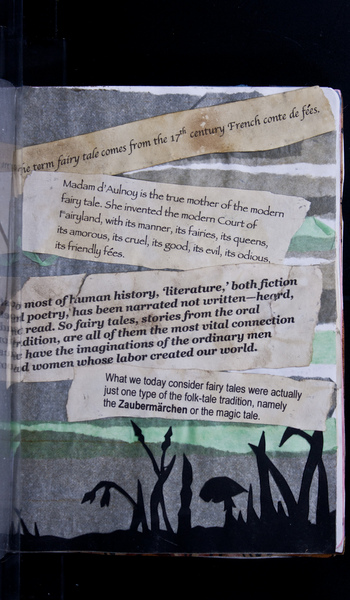 The term fairy tale comes from the 17th century French conte de fées.
Madam d'Aulnoy is the true mother of the modern
fairy tale. She invented the modern Court of
Fairyland, with its manner, its fairies, its queens,
its amorous, its cruel, its good, its evil, its odious,
its friendly fées.
most of human history, 'literature,' both fiction
poetry,' has been narrated not written—heard,
read. So fairy tales, stories from the oral
tradition, are all of them the most vital connection
we have the imaginations of the ordinary men
and women whose labor created our world.
What we today consider fairy tales were actually
just one type of the folk-tale tradition, namely
the Zaubermärchen or the magic tale.